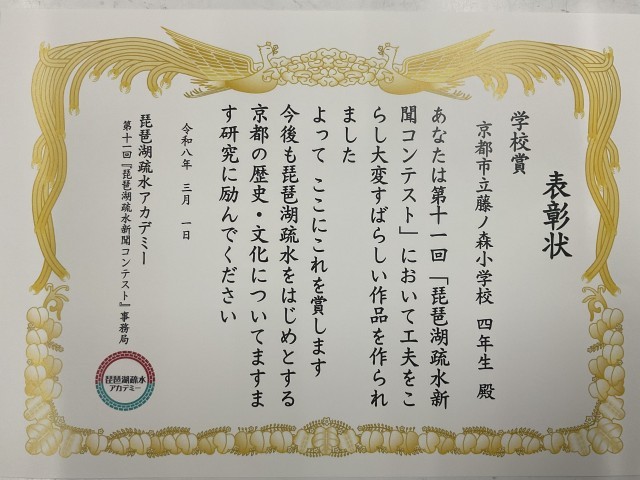 表彰状
学校賞
京都市立藤ノ森小学校 四年生 殿
あなたは第十一回「琵琶湖疏水新
聞コンテスト」において工夫をこ
らし大変すばらしい作品を作られ
ました
よって ここにこれを賞します
今後も琵琶湖疏水をはじめとする
京都の歴史・文化についてますま
す研究に励んでください
令和八年 三月 一日
琵琶湖疏水アカデミー
第十一回『琵琶湖疏水新聞コンテスト』事務局
琵琶湖疏水
アカデミー